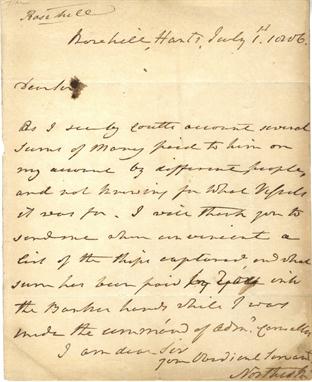 Rosehill
Rosehill, Hants, July 1st 1806.
Dear Sir
As I see by Coutts account several
sums of Money paid to him on
my account by different people,
and not knowing for what Vessels
it was for. I will thank you to
send me when convenient a
list of the ships captured and what
sum has been paid by into
the Banker hands while I was
under the command of Adml. Cornwallis
I am dear Sir
your Obedient Servant
Northesk